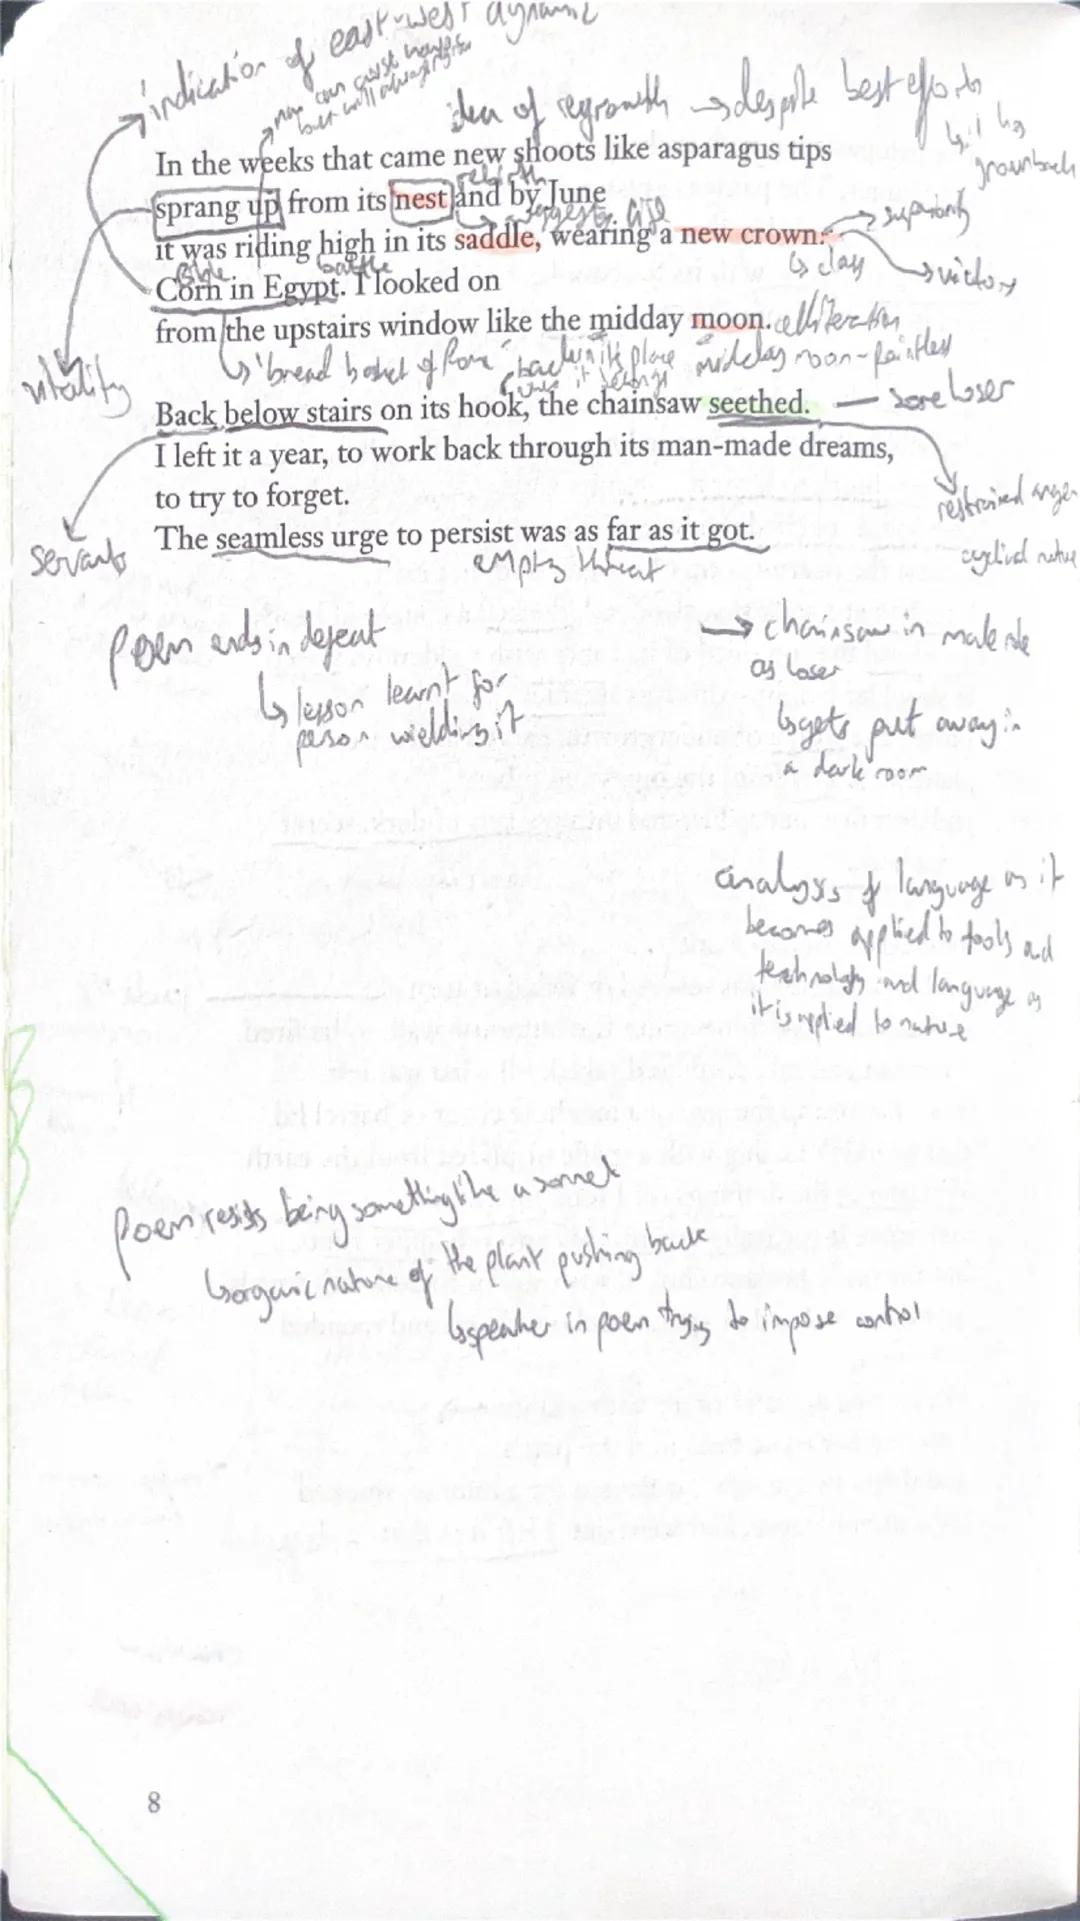 indication of east-west dynamic
man can
but will always
idea of regrowth → despite best efforts
it has
grown back
In the weeks that came new shoots like asparagus tips
rebirth
sprang up from its nest and by June
suggests life
superiority
it was riding high in its saddle, wearing a new crown.
Bible
battle
↳ class
→ victory
Corn in Egypt. I looked on
from the upstairs window like the midday moon.
alliteration
↳ 'bread basket of Rome'
back in its place
where it belongs
midday moon - pointless
vitality
Back below stairs on its hook, the chainsaw seethed.
— sore loser
I left it a year, to work back through its man-made dreams,
to try to forget.
restrained anger
The seamless urge to persist was as far as it got.
servants
empty threat
cyclical nature
poem ends in defeat
↳ lesson learnt for
person wielding it
→ chainsaw in male role
as loser
↳ gets put away in
a dark room
analysis of language as it
becomes applied to tools and
technology and language as
it is applied to nature
poem resists being something like a sonnet
↳ organic nature of the plant pushing back
↳ speaker in poem trying to impose control
8